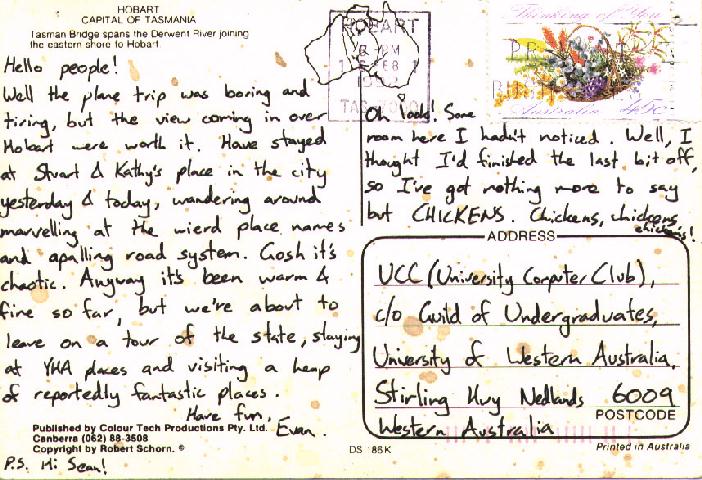 HOBART
CAPITAL OF TASMANIA
Tasman Bridge spans the Derwent River joining
the eastern shore to Hobart.
Hello people!
Well the plane trip was boring and
tiring, but the view coming in over
Hobart were worth it. Have stayed
at Stuart & Kathy's place in the city
yesterday & today, wandering around
marvelling at the wierd place names
and apalling road system. Gosh it's
chaotic. Anyway it's been warm &
fine so far, but we're about to
leave on a tour of the state, staying
at YHA places and visiting a heap
of reportedly fantastic places.
Have fun,
Evan.
Published by Colour Tech Productions Pty. Ltd.
Canberra (062) 88-3508
Copyright by Robert Schorn. ©
P.S. Hi Sean!
HOBART
PM
FEB
Thinking of You
Australia 45c
Oh look! Some
room here I hadn't noticed. Well, I
thought I'd finished the last bit off,
so I've got nothing more to say
but CHICKENS. Chickens, chickens,
chickens!
ADDRESS
UCC (University Computer Club),
c/o Guild of Undergraduates,
University of Western Australia,
Stirling Hwy Nedlands 6009
POSTCODE
Western Australia
DS 186K
Printed in Australia